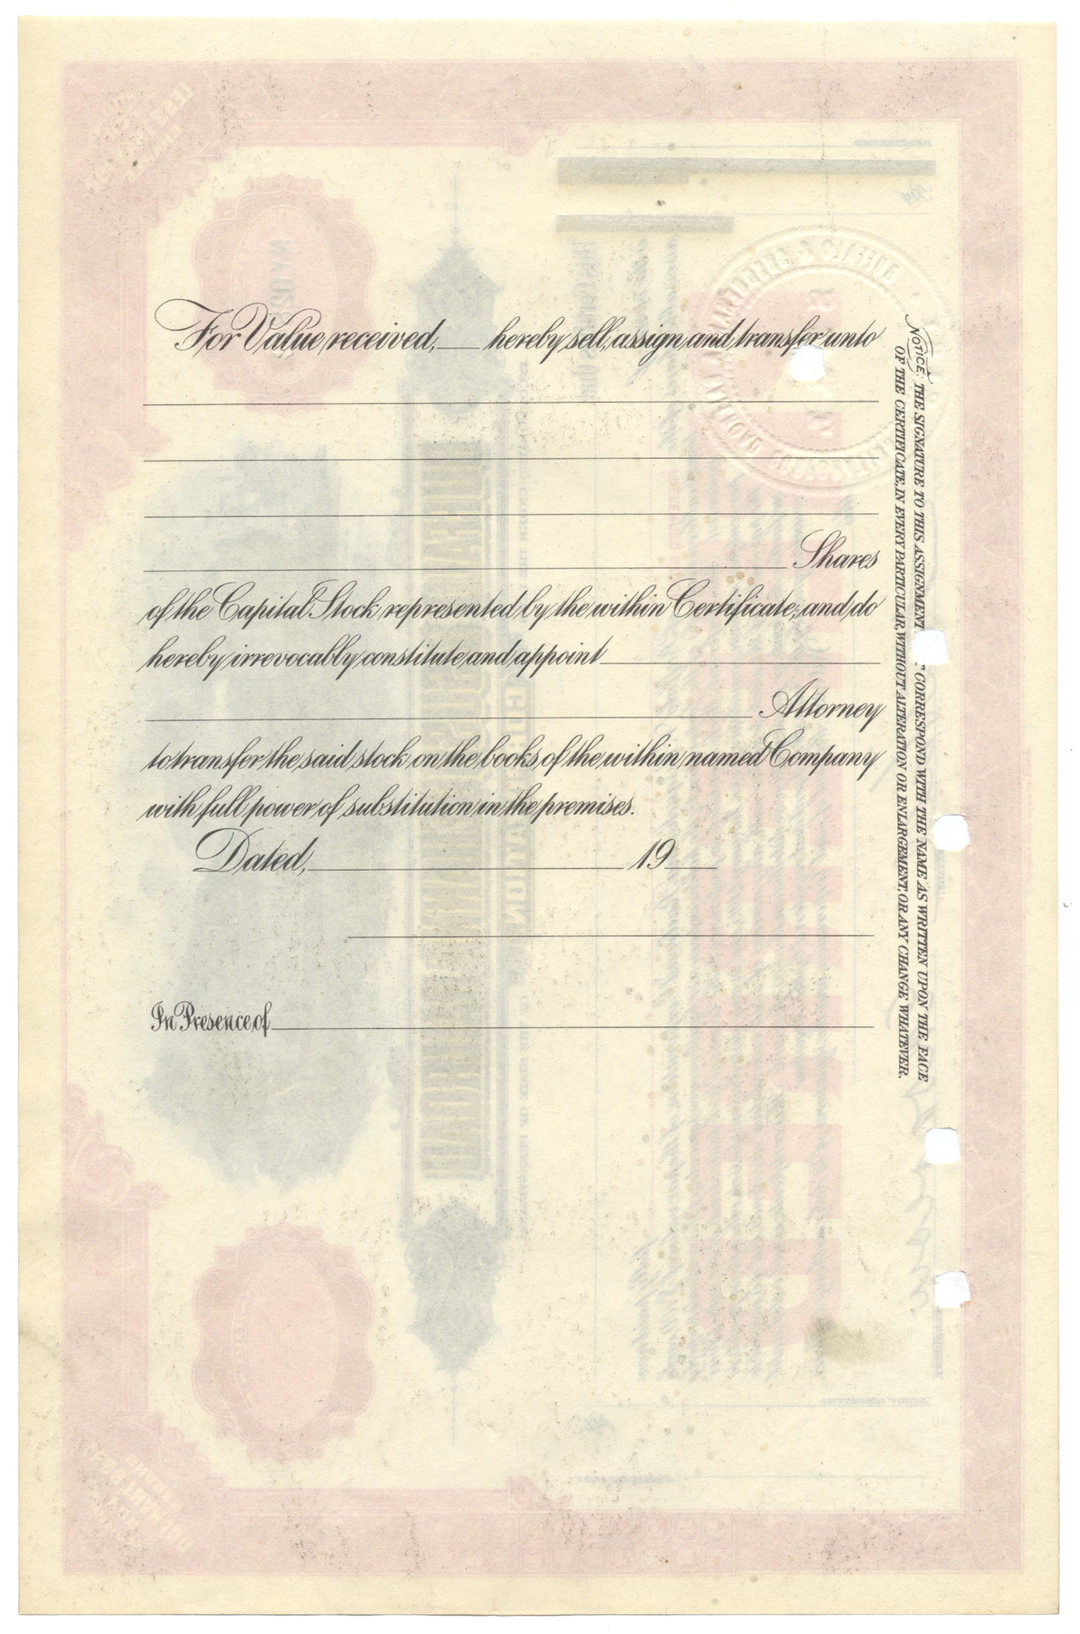 For Value received, ___ hereby sell, assign and transfer unto
Shares
of the Capital Stock represented by the within Certificate, and do
hereby irrevocably constitute and appoint
Attorney
to transfer the said stock on the books of the within named Company
with full power of substitution in the premises.
Dated, ___ 19___
In Presence of
NOTICE: THE SIGNATURE TO THIS ASSIGNMENT CORRESPOND WITH THE NAME AS WRITTEN UPON THE FACE
OF THE CERTIFICATE, IN EVERY PARTICULAR, WITHOUT ALTERATION OR ENLARGEMENT, OR ANY CHANGE WHATEVER.